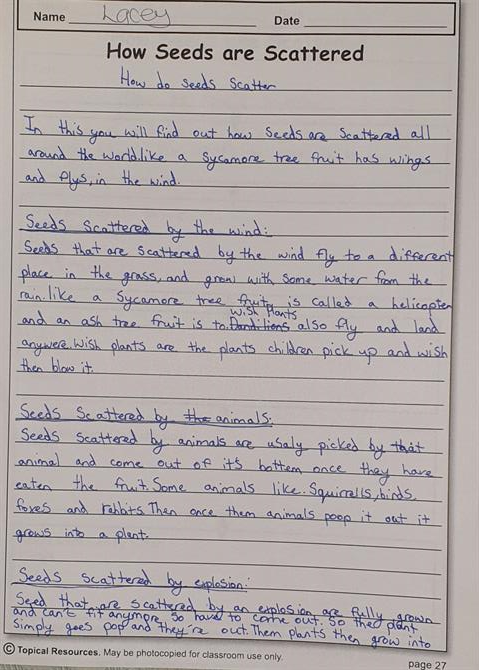 Name Lacey Date
How Seeds are Scattered
How do seeds Scatter
In this you will find out how Seeds are Scattered all
around the world.like a Sycamore tree fruit has wings
and flys, in the wind.
Seeds Scattered by the wind:
Seeds that are scattered by the wind fly to a different
place in the grass, and grow with some water from the
rain.like a Sycamore tree fruit is called a helicopter
wish plants
and an ash tree fruit is to. Dandilions also fly and land
anywere. Wish plants are the plants children pick up and wish
then blow it.
Seeds Scattered by the animals:
Seeds scattered by animals are usaly picked by that
animal and come out of its bottem once they have
eaten the fruit. Some animals like. Squirrells, birds.
foxes and rabbits. Then once them animals poop it out it
grows into a plant.
Seeds scattered by explosion:
Seed that are scattered by an explosion are fully grown
and can't fit anymore so have to come out. So the plant
simply goes pop and they're out. Them plants then grow into
© Topical Resources. May be photocopied for classroom use only.
page 27